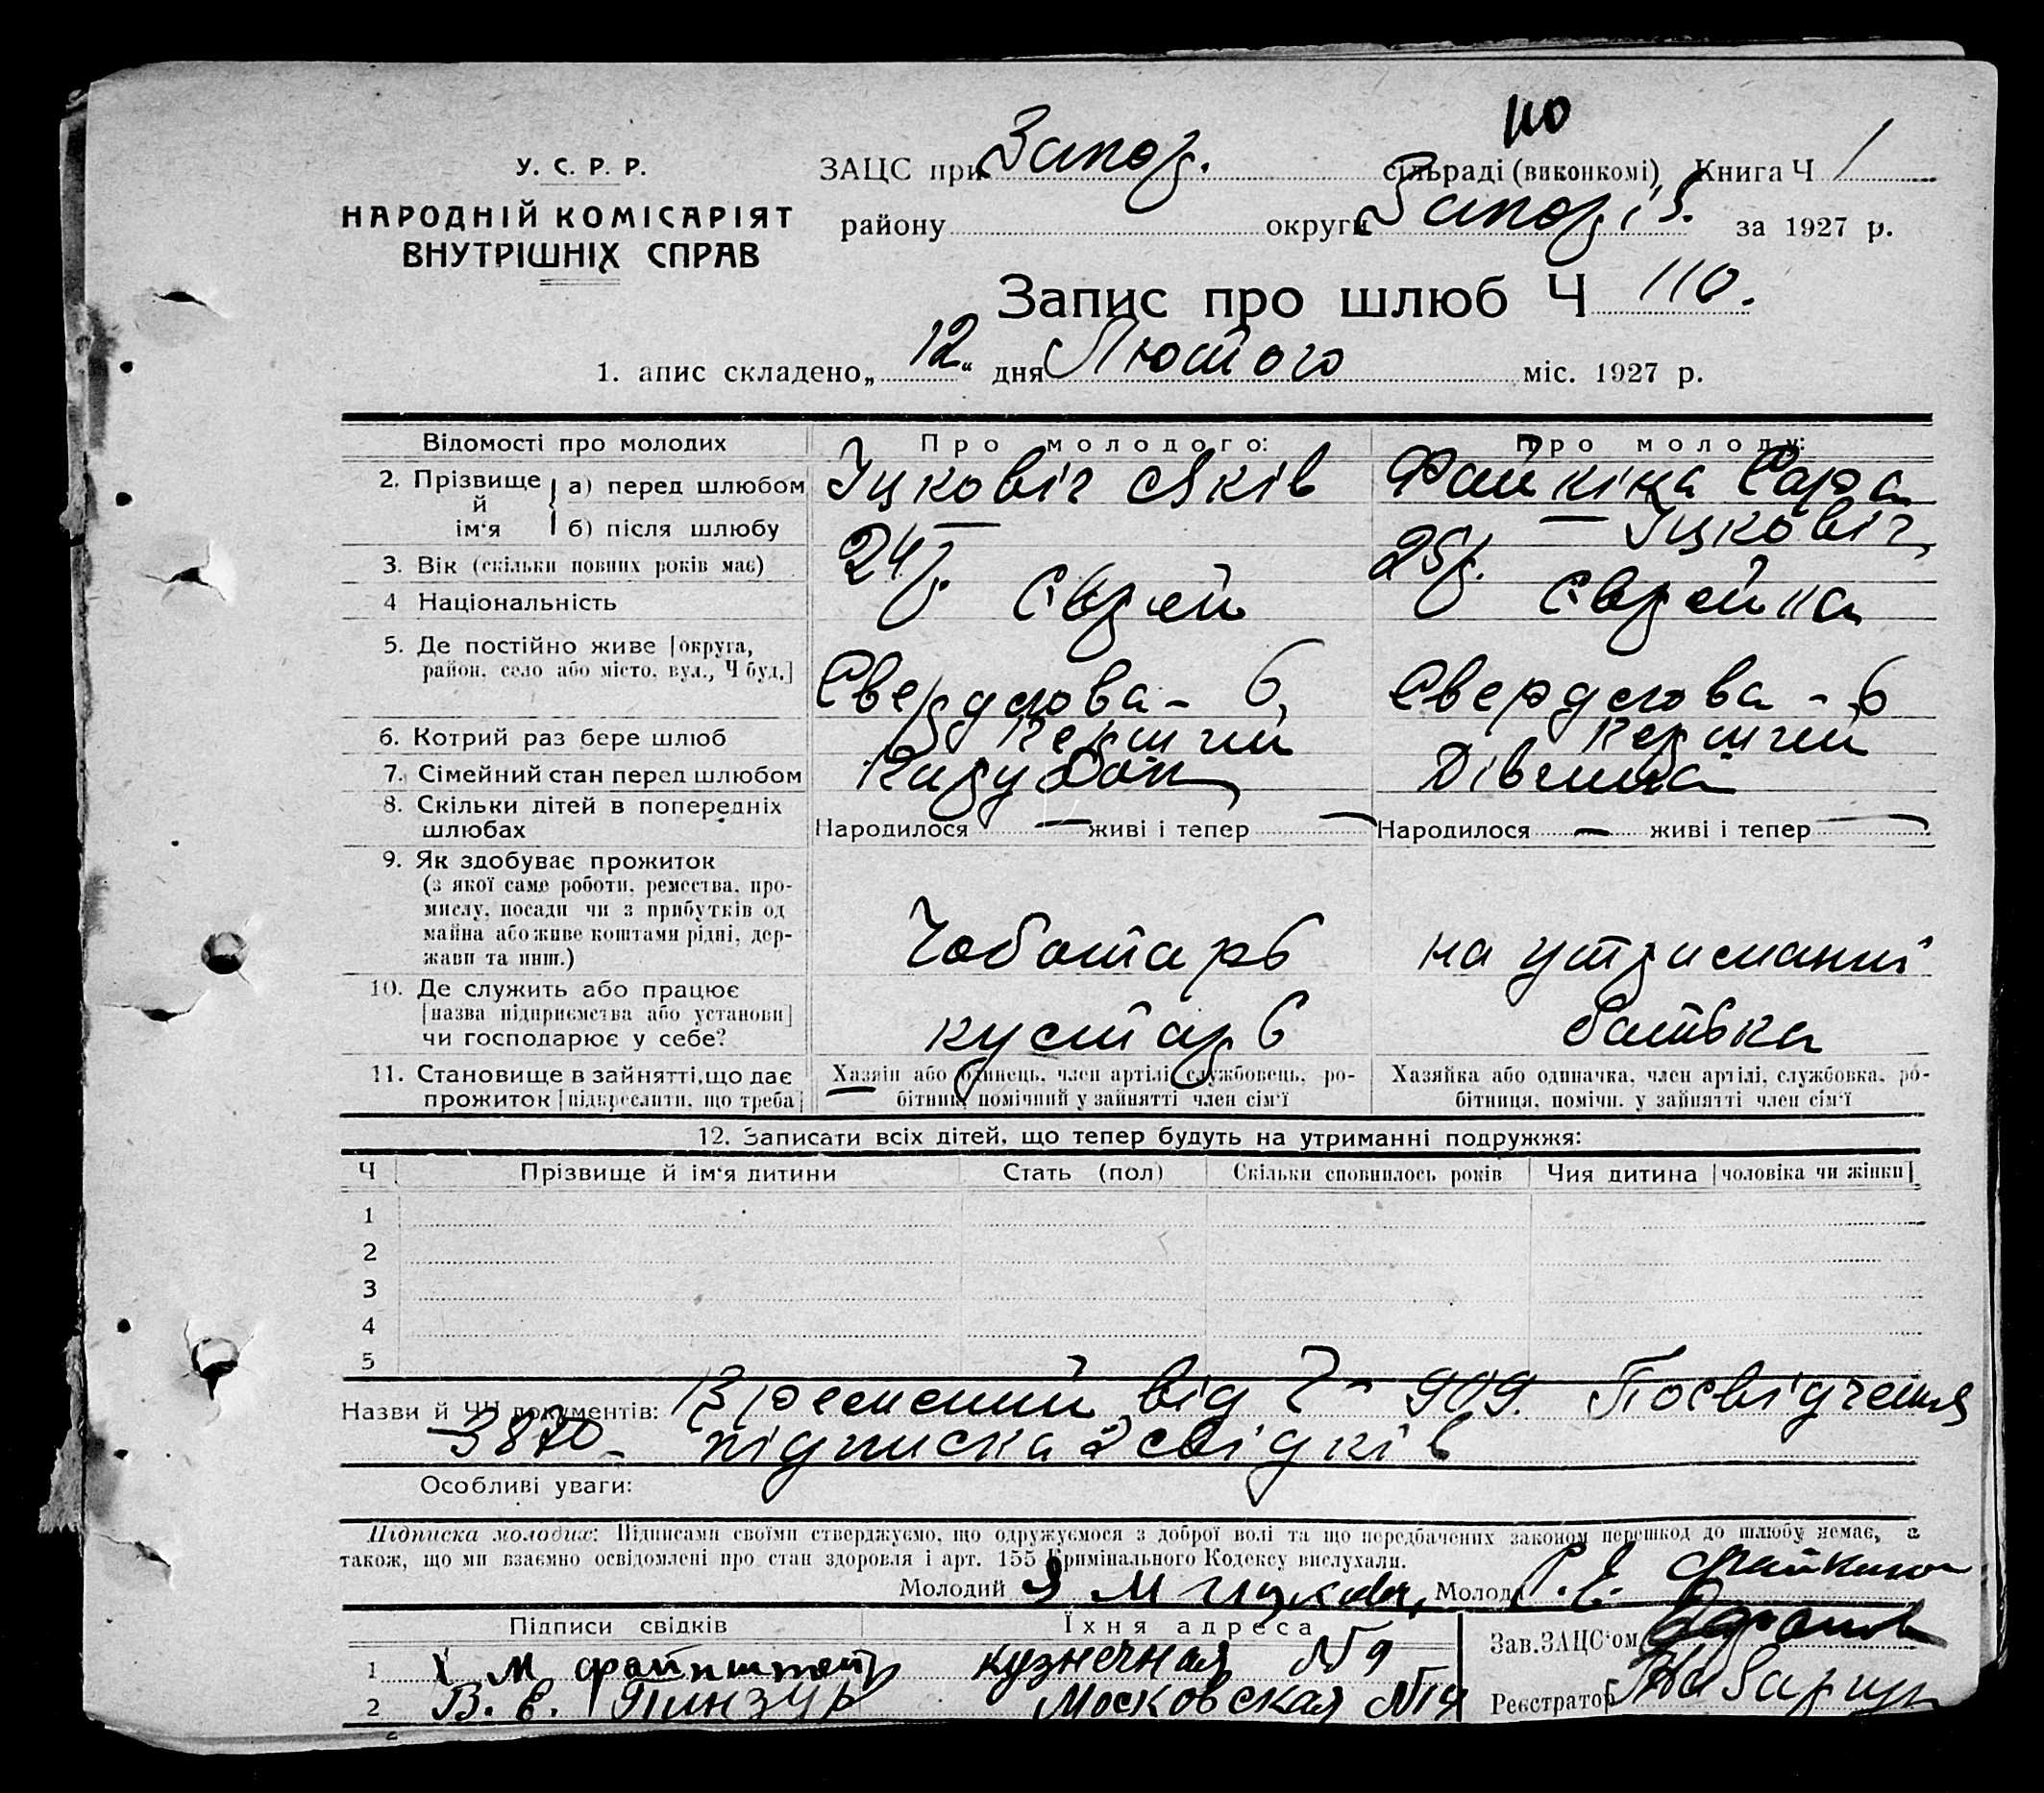 110
У. С. Р. Р.
НАРОДНІЙ КОМІСАРІЯТ
ВНУТРІШНІХ СПРАВ
ЗАЦС при Запор. сільраді (виконкомі) Книга Ч 1
району округи Запоріз. за 1927 р.
Запис про шлюб Ч 110.
1. апис складено „12“ дня Лютого міс. 1927 р.
Відомості про молодих Про молодого: Про молоду:
2. Прізвище й ім‘я а) перед шлюбом Іцковіч Яків Файкіна Сара
б) після шлюбу — — Іцковіч
3. Вік (скільки повних років має) 24 р. 25 р.
4 Національність Єврей Єврейка
5. Де постійно живе [округа,
район, село або місто, вул., Ч буд.] Свердлова - 6, Свердлова - 6
6. Котрий раз бере шлюб Перший Перший
7. Сімейний стан перед шлюбом Парубок Дівчина
8. Скільки дітей в попередніх
шлюбах Народилося — живі і тепер — Народилося — живі і тепер —
9. Як здобуває прожиток
(з якої саме роботи, ремества, про-
мислу, посади чи з прибутків од
майна або живе коштами рідні, дер-
жави та инш.) Чоботарь на утриманні
10. Де служить або працює
[назва підприємства або установи]
чи господарює у себе? кустарь батька
11. Становище в зайнятті, що дає
прожиток [підкреслити, що треба]
Хазяїн або одинець, член артілі службовець, ро-
бітник, помічний у зайнятті член сім‘ї
Хазяйка або одиначка, член артілі, службовка, ро-
бітниця, помічн. у зайнятті член сім‘ї
12. Записати всіх дітей, що тепер будуть на утриманні подружжя:
Ч Прізвище й ім‘я дитини Стать (пол) Скільки сповнилось років Чия дитина [чоловіка чи жінки]
1
2
3
4
5
Назви й ЧЧ документів: Временний від 909. Посвідчення
3870 - підписка 2 свідків
Особливі уваги:
Підписка молодих: Підписами своїми стверджуємо, що одружуємося з доброї волі та що передбачених законом перешкод до шлюбу немає, а
також, що ми взаємно освідомлені про стан здоровля і арт. 155 Кримінального Кодексу вислухали.
Молодий Я М Молода Файкина
Підписи свідків Їхня адреса Зав. ЗАЦС‘ом
1 Х М файнштейн кузнечная №9
2 В. Е. Пинзур Московская №19 Реєстратор